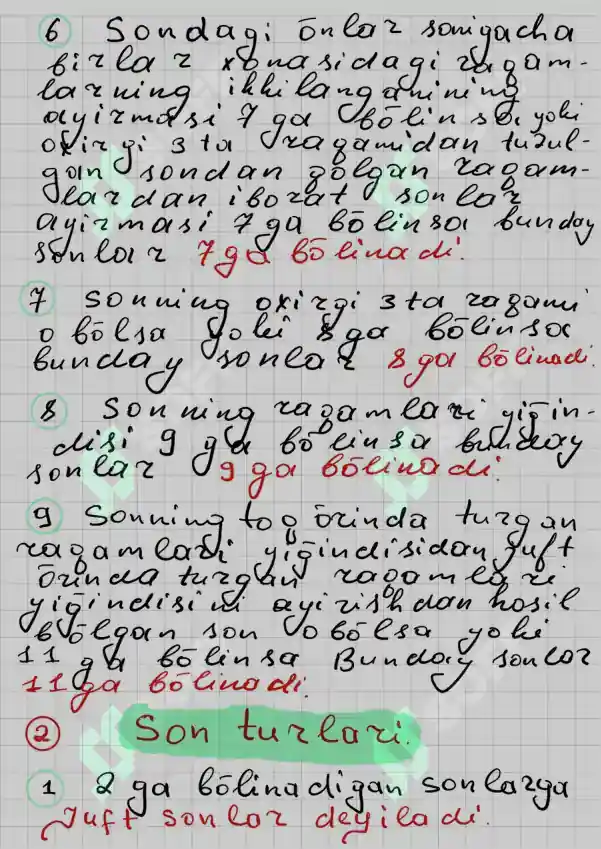 6 Sondagi ōnlar sonigacha
birlar xonasidagi raqam-
larning ikkilanganining
ayirmasi 7 ga bōlinsa yoki
oxirgi 3 ta raqamidan tuzul-
gan sondan qolgan raqam-
lardan iborat sonlar
ayirmasi 7 ga bōlinsa bunday
sonlar 7 ga bōlinadi.
7 Sonning oxirgi 3 ta raqami
0 bōlsa yoki 8 ga bōlinsa
bunday sonlar 8 ga bōlinadi.
8 Sonning raqamlari yiḡin-
disi 9 ga bōlinsa bunday
sonlar 9 ga bōlinadi.
9 Sonning toq ōrinda turgan
raqamlari yiḡindisidan juft
ōrinda turgan raqomlari
yiḡindisini ayirishdan hosil
bōlgan son 0 bōlsa yoki
11 ga bōlinsa Bunday sonlar
11 ga bōlinadi.
2 Son turlari.
1 2 ga bōlinadigan sonlarga
Juft sonlar deyiladi.